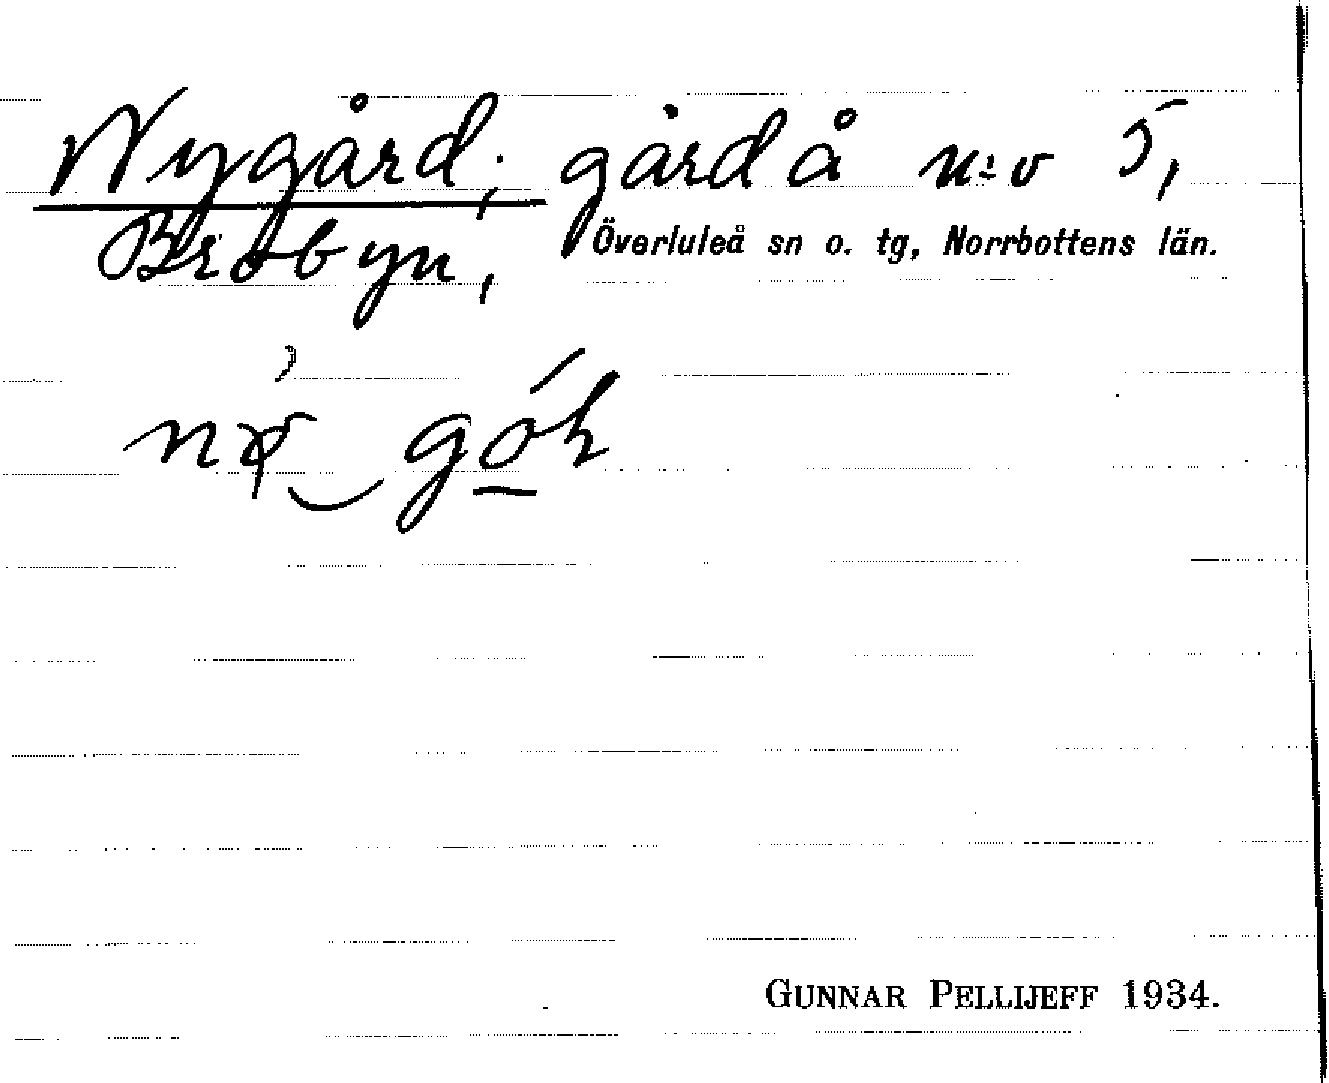 Nygård; gård å n:o 5,
Brobyn, Överluleå sn o. tg, Norrbottens län.
GUNNAR PELLIJEFF 1934.